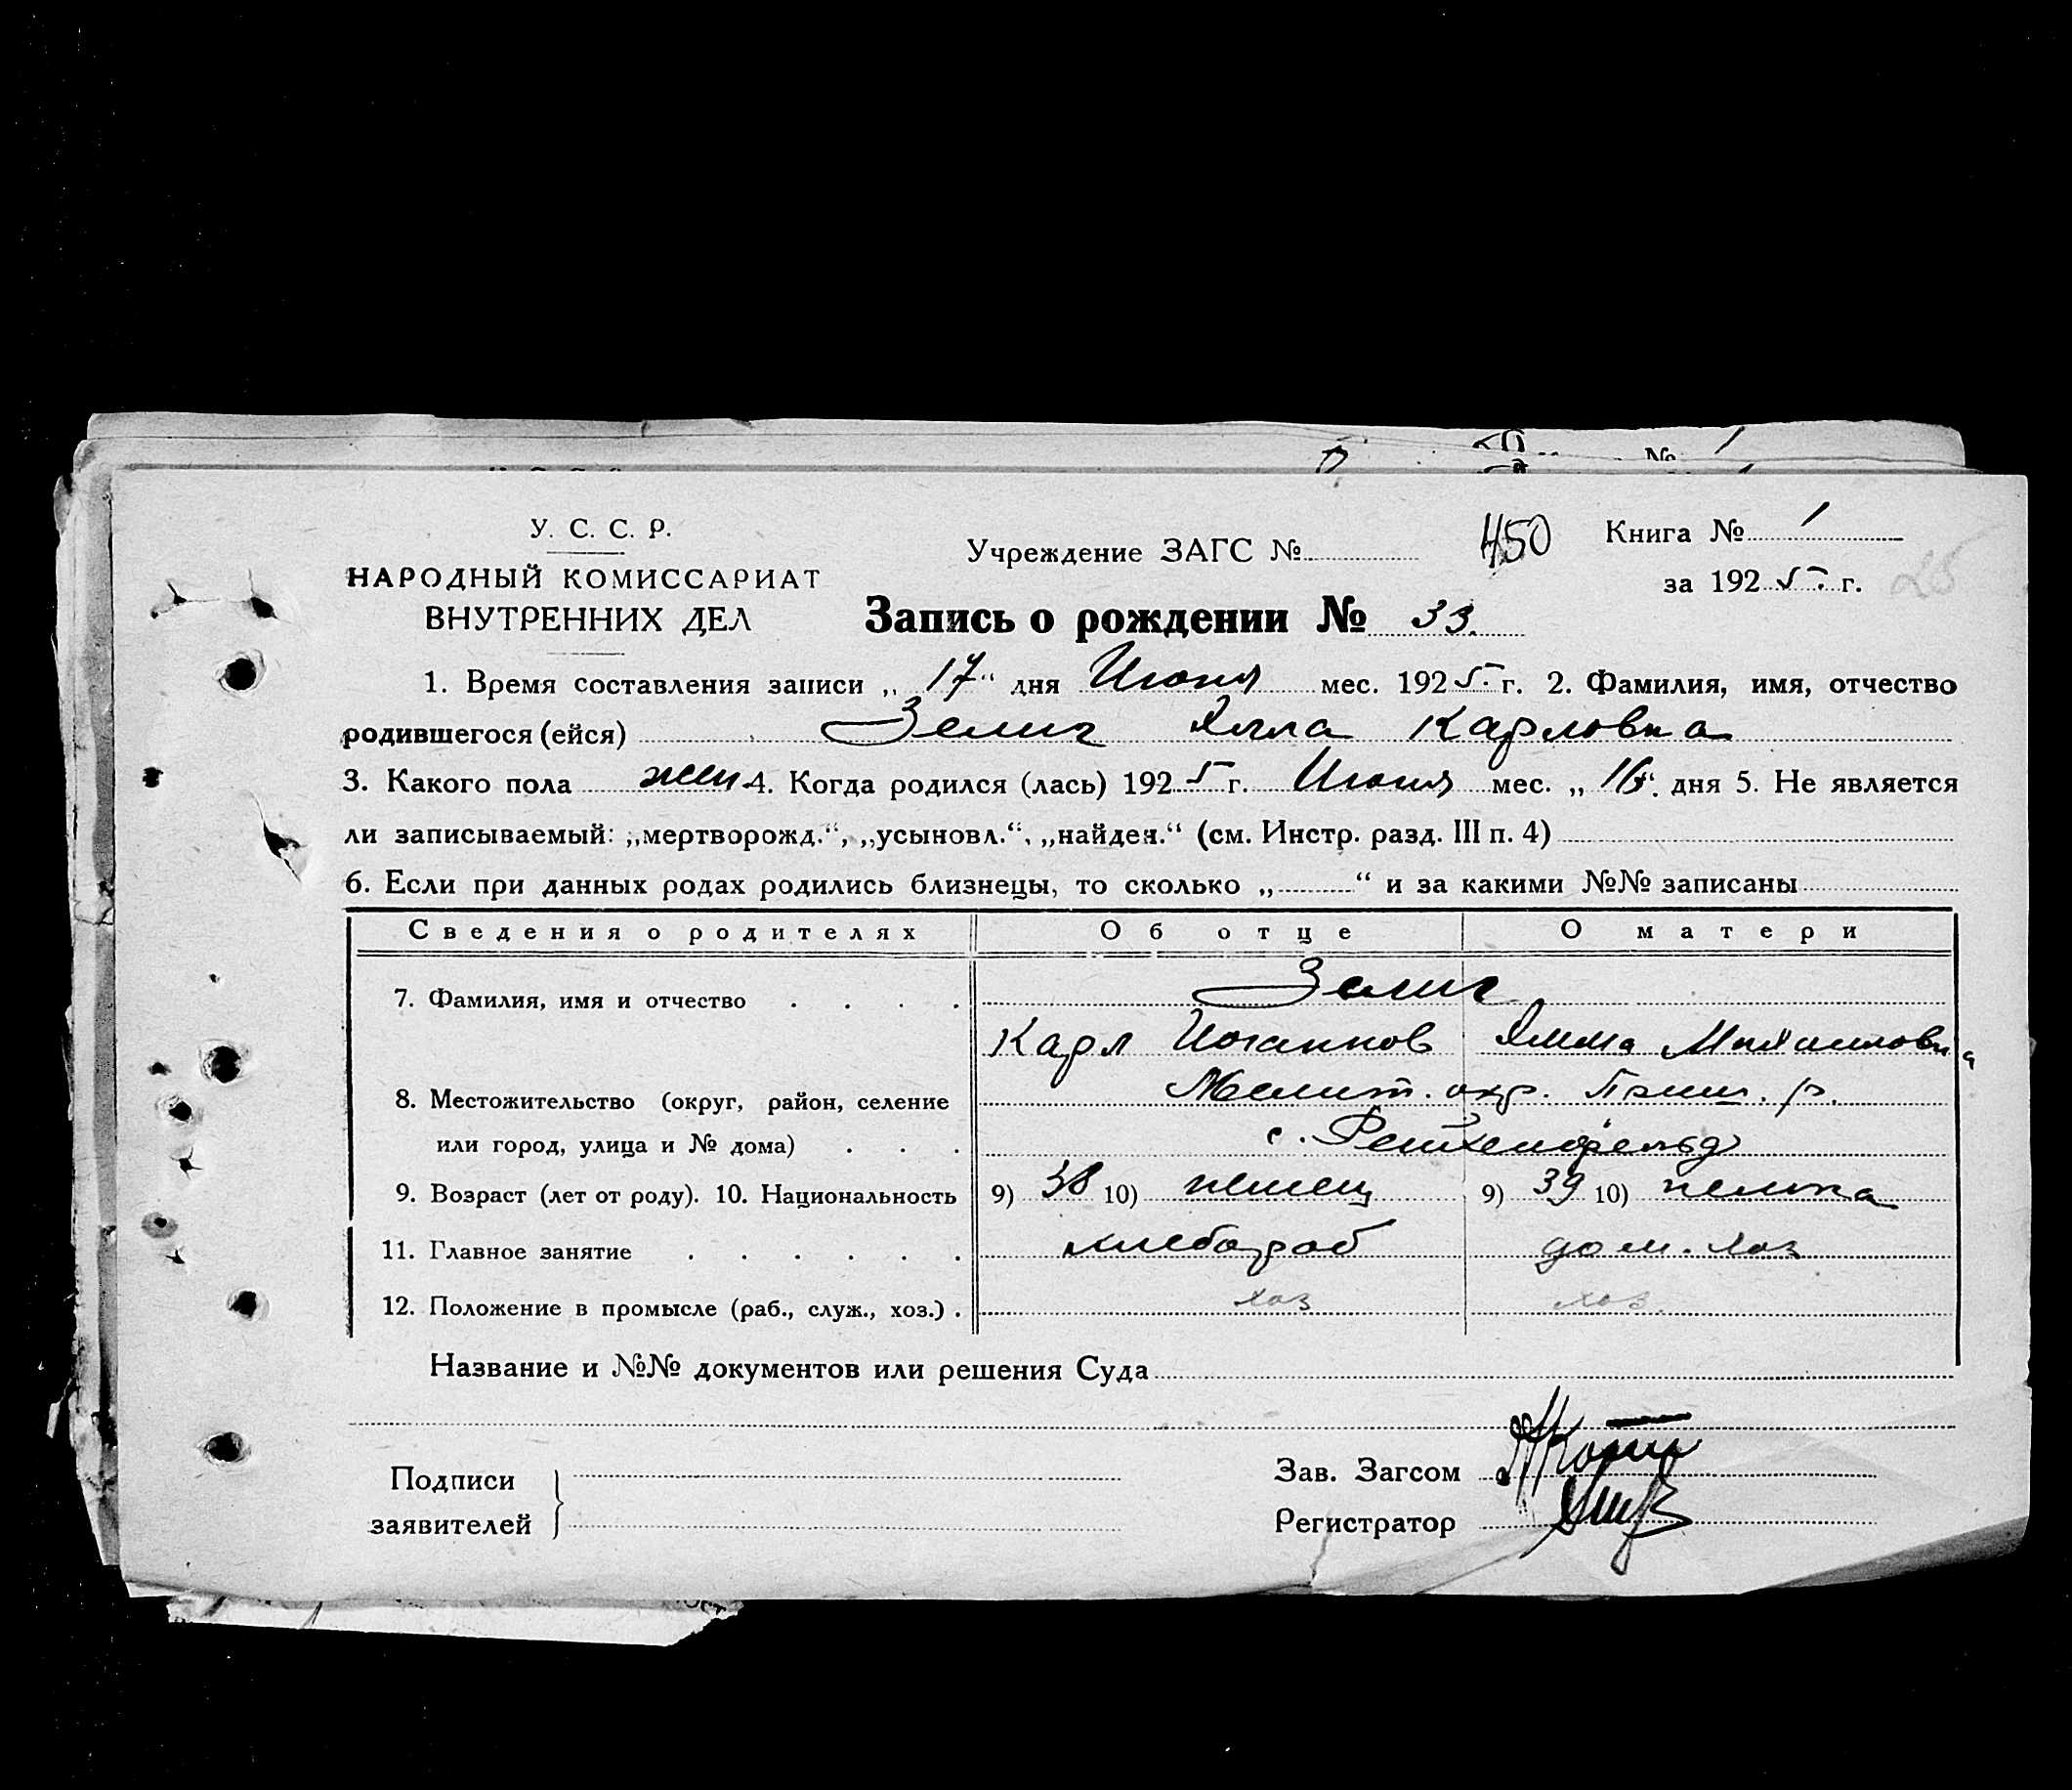 У. С. С. Р.
НАРОДНЫЙ КОМИССАРИАТ
ВНУТРЕННИХ ДЕЛ
Учреждение ЗАГС №
450
Книга № 1
за 1925 г.
25
Запись о рождении № 33.
1. Время составления записи „17“ дня Июня мес. 1925 г. 2. Фамилия, имя, отчество
родившегося (ейся) Зелиг Элла Карловна
3. Какого пола жен 4. Когда родился (лась) 1925 г. Июня мес. „16“ дня 5. Не является
ли записываемый: „мертворожд.“, „усыновл.“, „найден.“ (см. Инстр. разд. III п. 4)
6. Если при данных родах родились близнецы, то сколько „ “ и за какими №№ записаны
Сведения о родителях Об отце О матери
7. Фамилия, имя и отчество . . . . Зелиг
Карл Иоганнов Эмма Михаиловна
8. Местожительство (округ, район, селение Мелит. окр. Приш. р.
или город, улица и № дома) . . . с. Рейхенфельд
9. Возраст (лет от роду). 10. Национальность 9) 38 10) немец 9) 39 10) немка
11. Главное занятие . . . . . . хлебороб дом. хоз
12. Положение в промысле (раб., служ., хоз.) . хоз хоз.
Название и №№ документов или решения Суда
Подписи
заявителей
Зав. Загсом
Регистратор